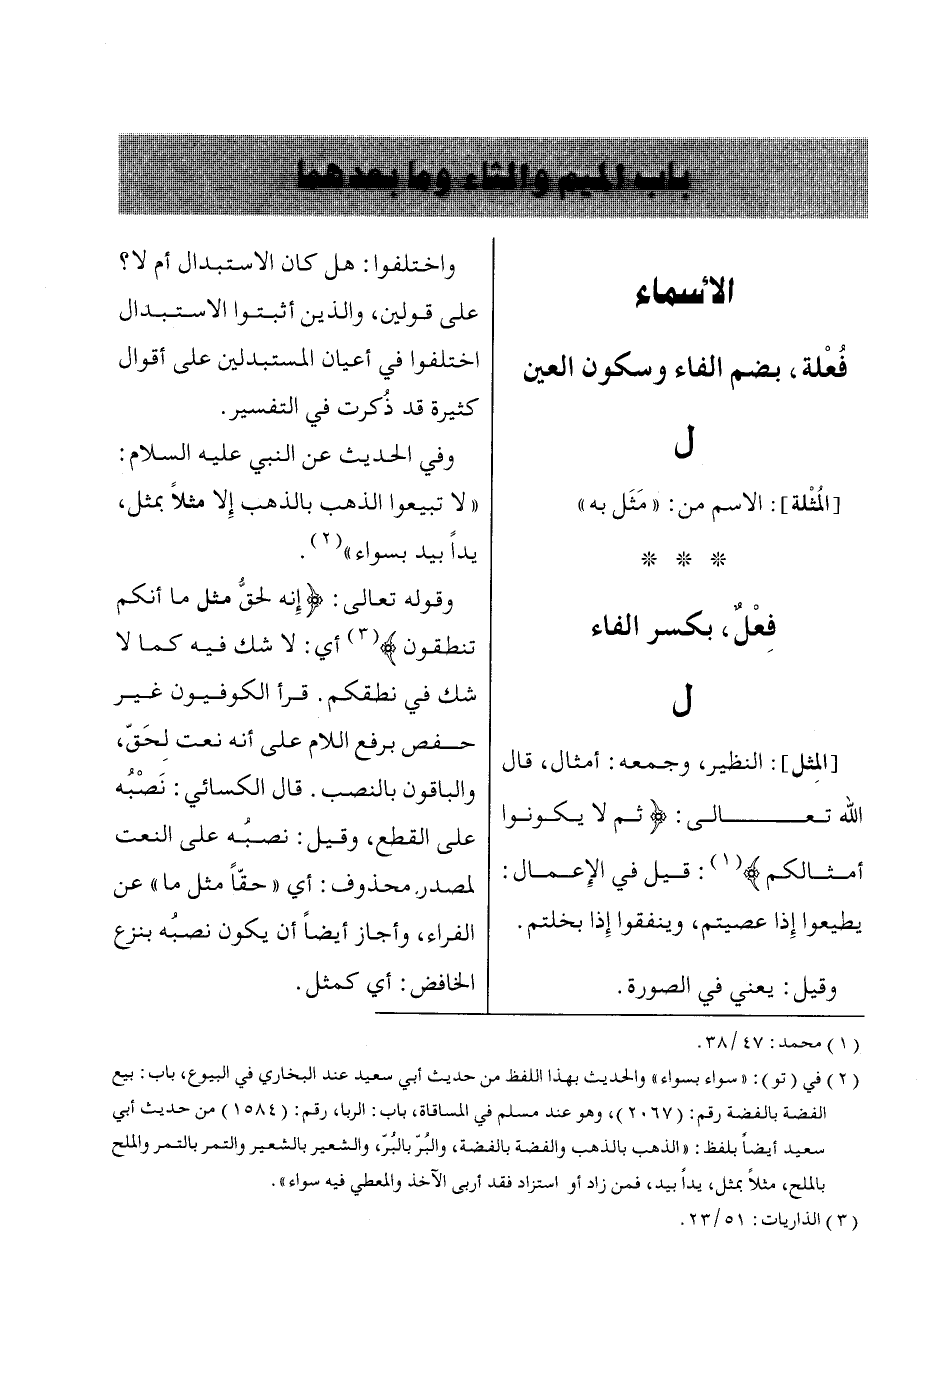 باب الميم والثاء وما بعدهما
الأسماء
فُعْلة، بضم الفاء وسكون العين
ل
[المُثْلة]: الاسم من: «مَثَل به»
* * *
فِعْلٌ، بكسر الفاء
ل
[المِثل]: النظير، وجمعه: أمثال، قال
الله تعالى: ﴿ثم لا يكونوا
أمثالكم﴾(١): قيل في الإعمال:
يطيعوا إذا عصيتم، وينفقوا إذا بخلتم.
وقيل: يعني في الصورة.
واختلفوا: هل كان الاستبدال أم لا؟
على قولين، والذين أثبتوا الاستبدال
اختلفوا في أعيان المستبدلين على أقوال
كثيرة قد ذُكرت في التفسير.
وفي الحديث عن النبي عليه السلام:
«لا تبيعوا الذهب بالذهب إلا مثلاً بمثل،
يداً بيد بسواء»(٢).
وقوله تعالى: ﴿إنه لحقٌّ مثل ما أنكم
تنطقون﴾(٣) أي: لا شك فيه كما لا
شك في نطقكم. قرأ الكوفيون غير
حفص برفع اللام على أنه نعت لِحَقّ،
والباقون بالنصب. قال الكسائي: نَصْبُه
على القطع، وقيل: نصبُه على النعت
لمصدر محذوف: أي «حقّاً مثل ما» عن
الفراء، وأجاز أيضاً أن يكون نصبُه بنزع
الخافض: أي كمثل.
(١) محمد: ٣٨/٤٧.
(٢) في (تو): «سواء بسواء» والحديث بهذا اللفظ من حديث أبي سعيد عند البخاري في البيوع، باب: بيع
الفضة بالفضة رقم: (٢٠٦٧)، وهو عند مسلم في المساقاة، باب: الربا، رقم: (١٥٨٤) من حديث أبي
سعيد أيضاً بلفظ: «الذهب بالذهب والفضة بالفضة، والبُرّ بالبُرّ، والشعير بالشعير والتمر بالتمر والملح
بالملح، مثلاً بمثل، يداً بيد، فمن زاد أو استزاد فقد أربى الآخذ والمعطي فيه سواء».
(٣) الذاريات: ٢٣/٥١.